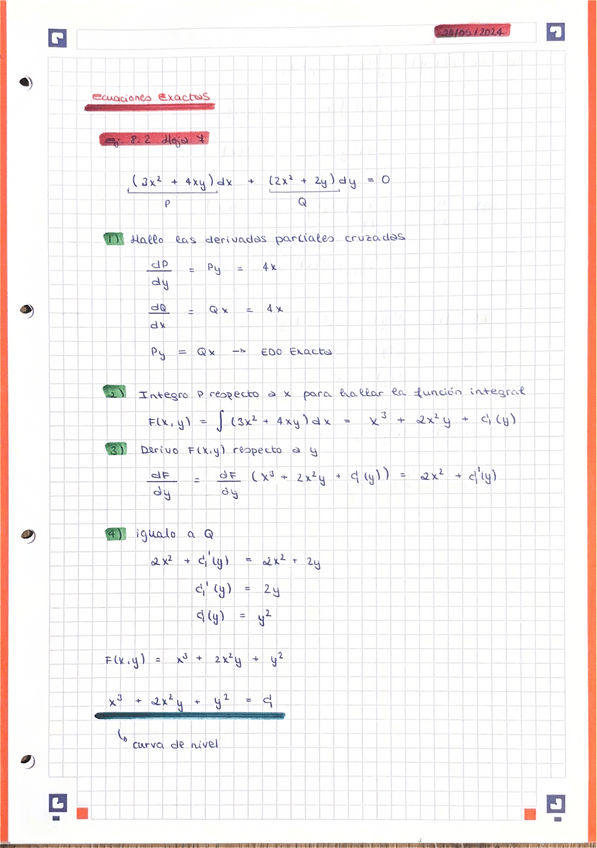 28/05/2024
Ecuaciones Exactas
Ej. 8.2 Hoja 7
(3x² + 4xy) dx + (2x² + 2y) dy = 0
P Q
1) Hallo las derivadas parciales cruzadas
dP/dy = Py = 4x
dQ/dx = Qx = 4x
Py = Qx → EDO Exacta
2) Integro P respecto a x para hallar la función integral
F(x,y) = ∫(3x² + 4xy) dx = x³ + 2x²y + C₁(y)
3) Derivo F(x,y) respecto a y
dF/dy = dF/dy (x³ + 2x²y + C₁(y)) = 2x² + C₁'(y)
4) igualo a Q
2x² + C₁'(y) = 2x² + 2y
C₁'(y) = 2y
C₁(y) = y²
F(x,y) = x³ + 2x²y + y²
x³ + 2x²y + y² = C₁
↳ curva de nivel